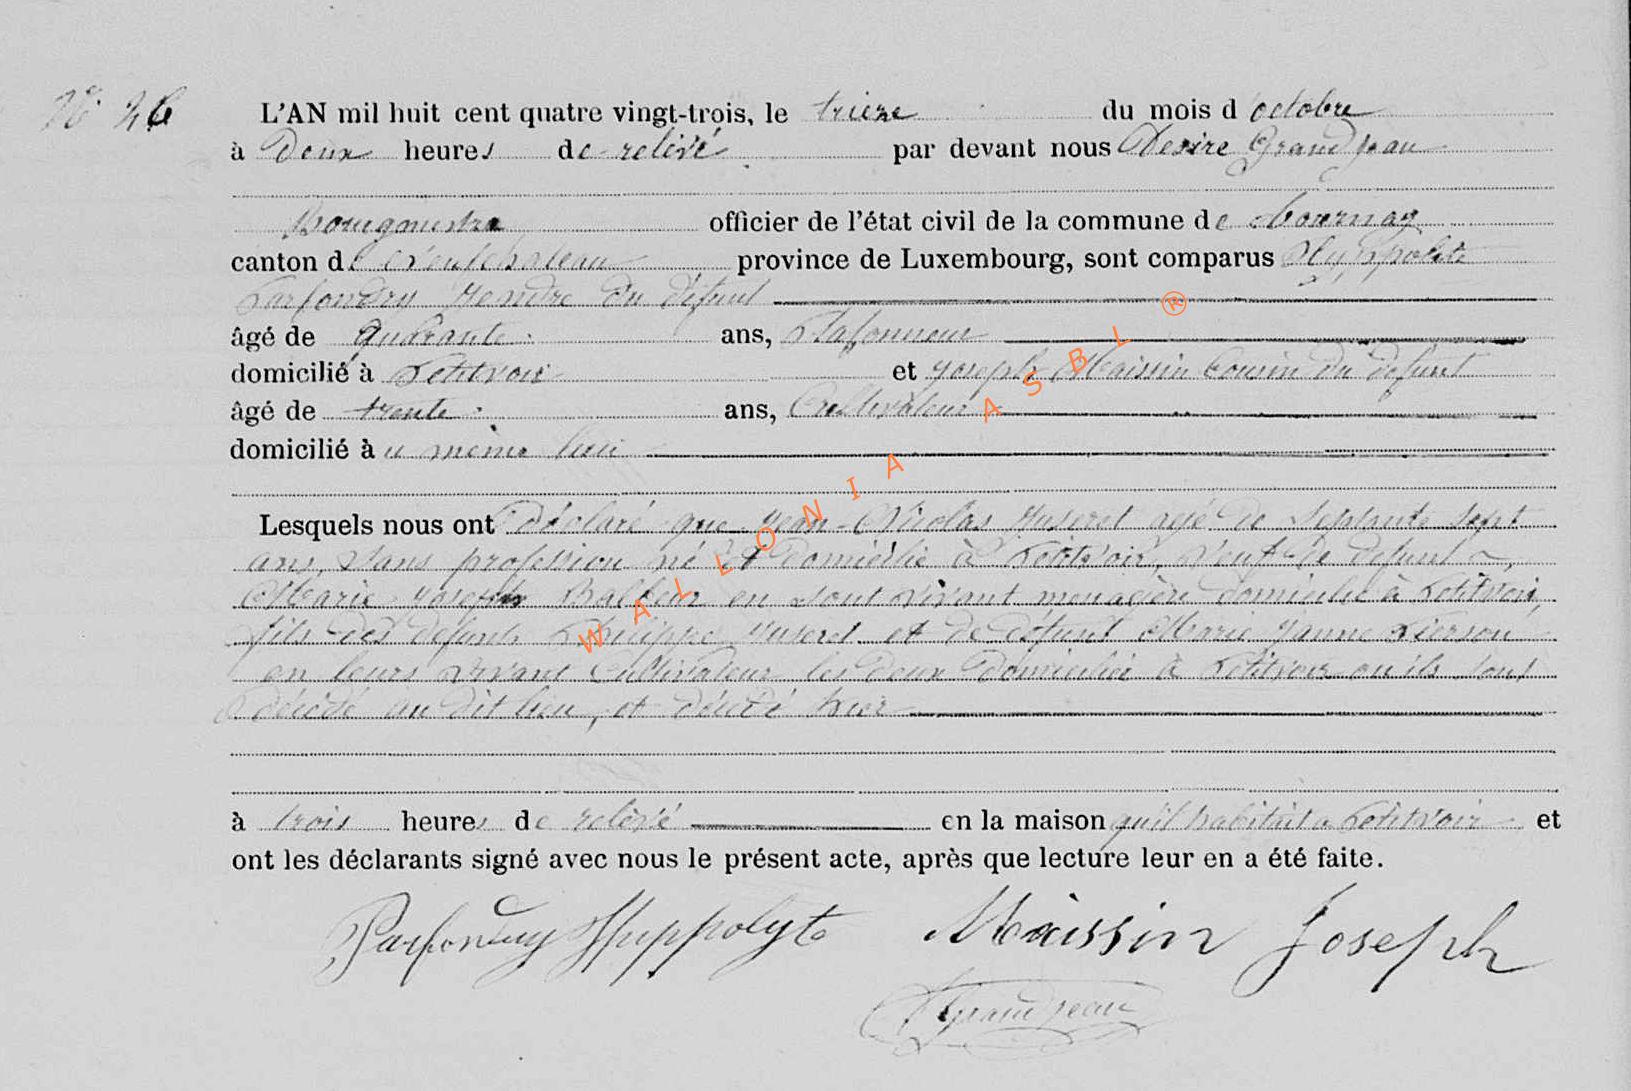 N° 26
L'AN mil huit cent quatre vingt-trois, le trieze du mois d'octobre
à Deux heures de relévé par devant nous Desire Grandjean
Bourgmestre officier de l'état civil de la commune de Tournay
canton de Neufchateau province de Luxembourg, sont comparus Hyppolite
Parfondry Gendre du défunt
âgé de Quarante ans, Plafonneur
domicilié à Petitvoir et Joseph Maissin Cousin du defunt
âgé de trente ans, Cultivateur
domicilié à u même lieu
Lesquels nous ont déclaré que Jean-Nicolas Museret agé de Septante Sept
ans, Sans profession né et domicilie à Petitvoir, veuf de defunt
Marie Joseph en sont vivant menagère domicilié à Petitvoir,
fils des defunts Philippe Museret et de défunt Marie Janne Pierson
en leurs vivant Cultivateur les deux domicilié à Petitvoir ou ils sont
décédé au dit lieu, et décédé hier
à trois heures de relévé en la maison qu'il habitait a Petitvoir et
ont les déclarants signé avec nous le présent acte, après que lecture leur en a été faite.
Parfondry Hyppolyte Maissin Joseph
DGrandjean
WALLONIA ASBL ®